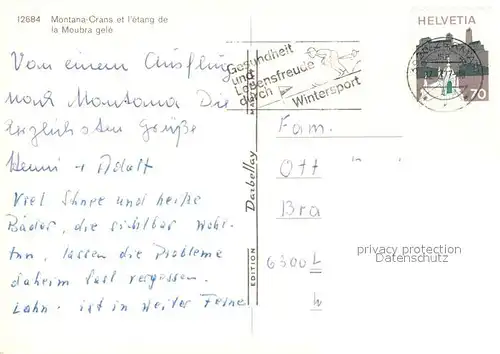 12684 Montana-Crans et l'étang de
la Moubra gelé
Von einem Ausflug
nach Montana Die
herzlichsten Grüße
Henni + Adolf
Viel Schnee und heiße
Bäder, die sichtbar wohl-
tun, lassen die Probleme
daheim fast vergessen.
Lahn ist in weiter Ferne
EDITION Darbellay MARTIGNY
Gesundheit
und
Lebensfreude
durch
Wintersport
HELVETIA
70
Fam.
Ott
Bra
6300 L
privacy protection
Datenschutz